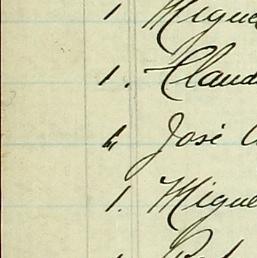 1 Migue
1. Claud
" José
1. Migue